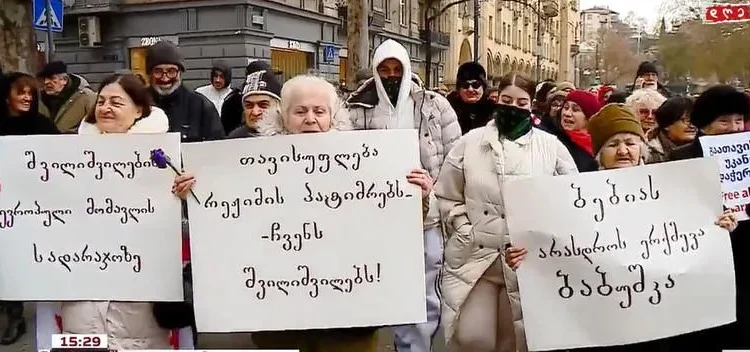 ZONE
შვილიშვილების
ევროპული მომავლის
სადარაჯოზე
თავისუფლება
რეჟიმის პატიმრებს-
-ჩვენს
შვილიშვილებს!
ბებიას
არასდროს ერქმევა
ბაბუშკა
უკან
15:29